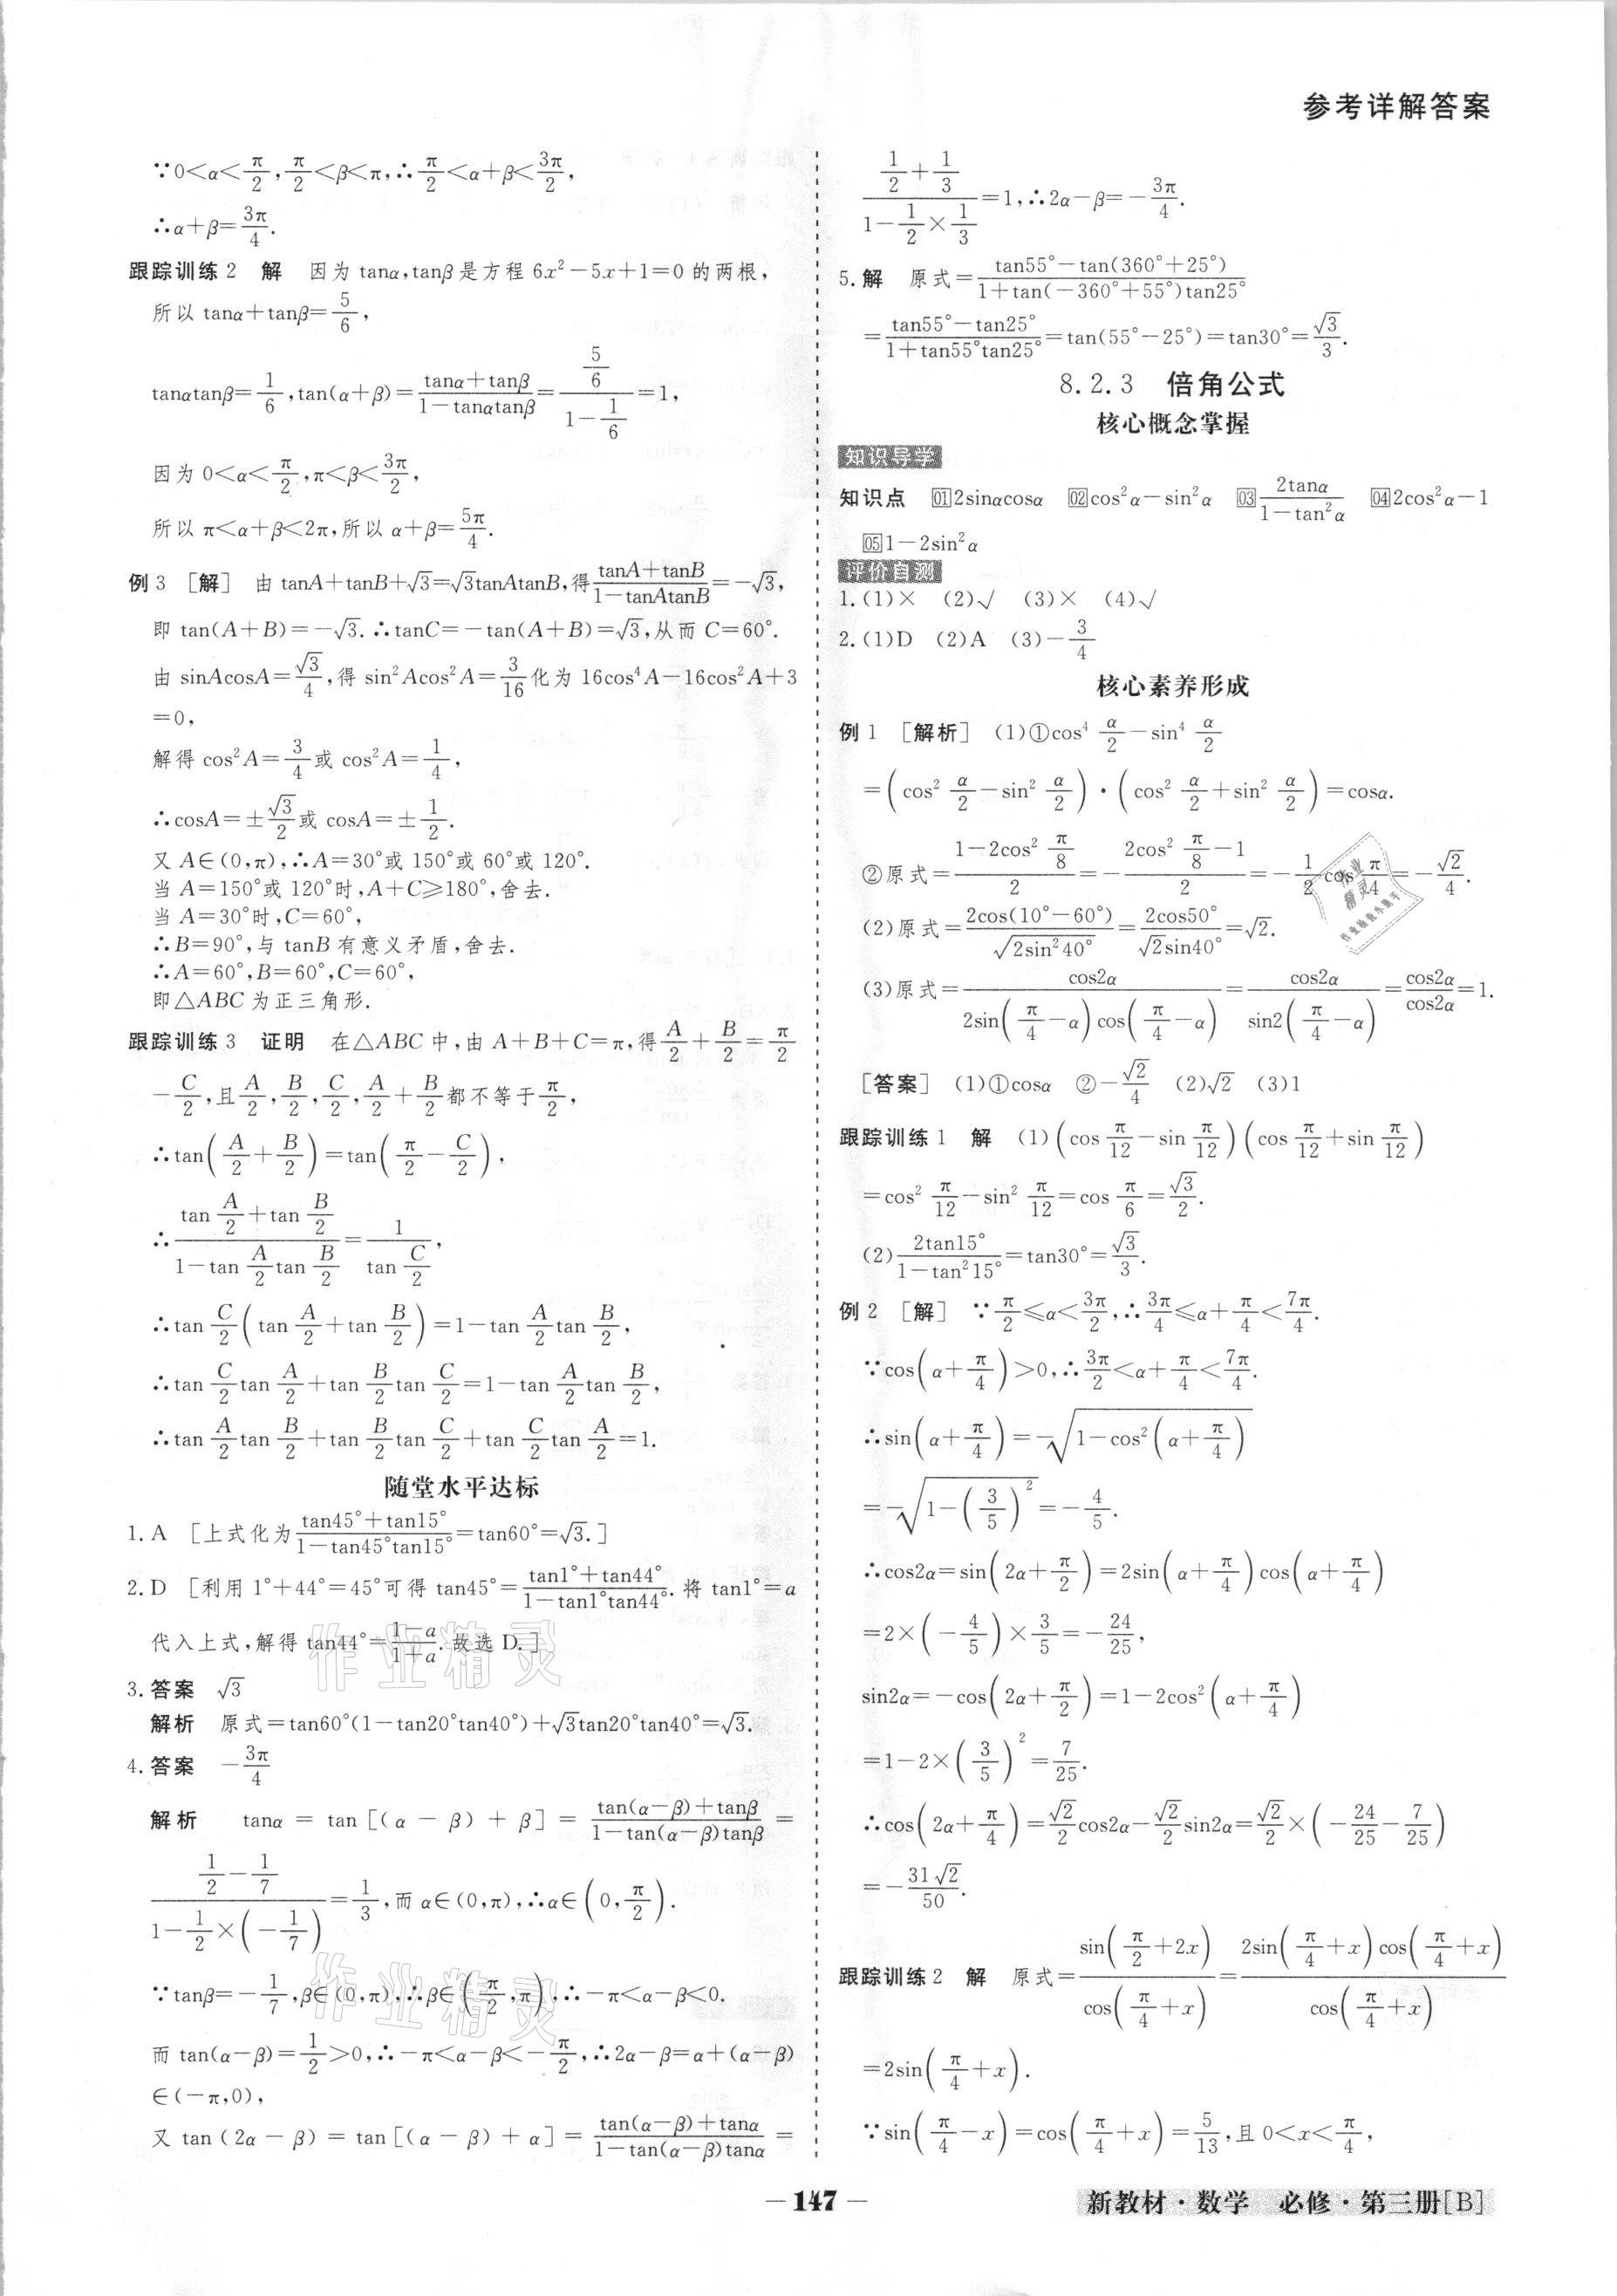 参考详解答案
∵0<α<π/2,π/2<β<π,∴π/2<α+β<3π/2,
∴α+β=3π/4.
跟踪训练2 解 因为 tanα,tanβ是方程 6x²-5x+1=0 的两根,
所以 tanα+tanβ=5/6,
tanαtanβ=1/6,tan(α+β)=(tanα+tanβ)/(1-tanαtanβ)=(5/6)/(1-1/6)=1,
因为 0<α<π/2,π<β<3π/2,
所以 π<α+β<2π,所以 α+β=5π/4.
例3 [解] 由 tanA+tanB+√3=√3tanAtanB,得(tanA+tanB)/(1-tanAtanB)=-√3,
即 tan(A+B)=-√3.∴tanC=-tan(A+B)=√3,从而 C=60°.
由 sinAcosA=√3/4,得 sin²Acos²A=3/16化为 16cos⁴A-16cos²A+3
=0,
解得 cos²A=3/4或 cos²A=1/4,
∴cosA=±√3/2或 cosA=±1/2.
又 A∈(0,π),∴A=30°或 150°或 60°或 120°.
当 A=150°或 120°时,A+C≥180°,舍去.
当 A=30°时,C=60°,
∴B=90°,与 tanB 有意义矛盾,舍去.
∴A=60°,B=60°,C=60°,
即△ABC 为正三角形.
跟踪训练3 证明 在△ABC 中,由 A+B+C=π,得A/2+B/2=π/2
-C/2,且A/2,B/2,C/2,A/2+B/2都不等于π/2,
∴tan(A/2+B/2)=tan(π/2-C/2),
∴(tan A/2+tan B/2)/(1-tan A/2 tan B/2)=1/(tan C/2),
∴tan C/2(tan A/2+tan B/2)=1-tan A/2 tan B/2,
∴tan C/2 tan A/2+tan B/2 tan C/2=1-tan A/2 tan B/2,
∴tan A/2 tan B/2+tan B/2 tan C/2+tan C/2 tan A/2=1.
随堂水平达标
1.A [上式化为(tan45°+tan15°)/(1-tan45°tan15°)=tan60°=√3.]
2.D [利用 1°+44°=45°可得 tan45°=(tan1°+tan44°)/(1-tan1°tan44°).将 tan1°=a
代入上式,解得 tan44°=(1-a)/(1+a).故选 D.]
3.答案 √3
解析 原式=tan60°(1-tan20°tan40°)+√3tan20°tan40°=√3.
4.答案 -3π/4
解析 tanα=tan[(α-β)+β]=(tan(α-β)+tanβ)/(1-tan(α-β)tanβ)=
(1/2-1/7)/(1-1/2×(-1/7))=1/3,而 α∈(0,π),∴α∈(0,π/2).
∵tanβ=-1/7,β∈(0,π),∴β∈(π/2,π),∴-π<α-β<0.
而 tan(α-β)=1/2>0,∴-π<α-β<-π/2,∴2α-β=α+(α-β)
∈(-π,0),
又 tan(2α-β)=tan[(α-β)+α]=(tan(α-β)+tanα)/(1-tan(α-β)tanα)=
(1/2+1/3)/(1-1/2×1/3)=1,∴2α-β=-3π/4.
5.解 原式=(tan55°-tan(360°+25°))/(1+tan(-360°+55°)tan25°)
=(tan55°-tan25°)/(1+tan55°tan25°)=tan(55°-25°)=tan30°=√3/3.
8.2.3 倍角公式
核心概念掌握
知识导学
知识点 01 2sinαcosα 02 cos²α-sin²α 03 2tanα/(1-tan²α) 04 2cos²α-1
05 1-2sin²α
评价自测
1.(1)× (2)√ (3)× (4)√
2.(1)D (2)A (3)-3/4
核心素养形成
例1 [解析] (1)①cos⁴ α/2-sin⁴ α/2
=(cos² α/2-sin² α/2)·(cos² α/2+sin² α/2)=cosα.
②原式=(1-2cos² π/8)/2=-(2cos² π/8-1)/2=-1/2 cos π/4=-√2/4.
(2)原式=2cos(10°-60°)/√(2sin²40°)=2cos50°/(√2sin40°)=√2.
(3)原式=cos2α/(2sin(π/4-α)cos(π/4-α))=cos2α/(sin2(π/4-α))=cos2α/cos2α=1.
[答案] (1)①cosα ②-√2/4 (2)√2 (3)1
跟踪训练1 解 (1)(cos π/12-sin π/12)(cos π/12+sin π/12)
=cos² π/12-sin² π/12=cos π/6=√3/2.
(2)2tan15°/(1-tan²15°)=tan30°=√3/3.
例2 [解] ∵π/2≤α<3π/2,∴3π/4≤α+π/4<7π/4.
∵cos(α+π/4)>0,∴3π/2<α+π/4<7π/4.
∴sin(α+π/4)=-√(1-cos²(α+π/4))
=-√(1-(3/5)²)=-4/5.
∴cos2α=sin(2α+π/2)=2sin(α+π/4)cos(α+π/4)
=2×(-4/5)×3/5=-24/25,
sin2α=-cos(2α+π/2)=1-2cos²(α+π/4)
=1-2×(3/5)²=7/25.
∴cos(2α+π/4)=√2/2cos2α-√2/2sin2α=√2/2×(-24/25-7/25)
=-31√2/50.
跟踪训练2 解 原式=sin(π/2+2x)/cos(π/4+x)=2sin(π/4+x)cos(π/4+x)/cos(π/4+x)
=2sin(π/4+x).
∵sin(π/4-x)=cos(π/4+x)=5/13,且 0<x<π/4,
作业精灵
作业精灵
作业精灵
-147-
新教材·数学 必修·第三册[B]